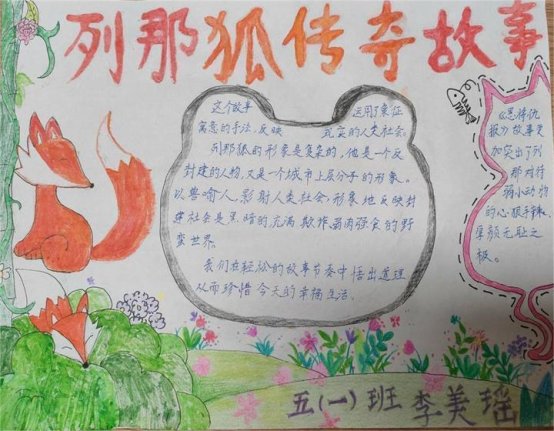 列那狐传奇故事
这个故事 运用了象征
寓意的手法,反映 现实的人类社会。
列那狐的形象是复杂的,他是一个反
封建的人物,又是一个城市上层分子的形象。
以兽喻人,影射人类社会,形象地反映封
建社会是黑暗的充满欺诈、弱肉强食的野
蛮世界。
我们在轻松的故事节奏中悟出道理
从而珍惜今天的幸福生活。
《恩将仇
报》故事更
加突出了列
那对付
弱小动物
的心狠手辣,
厚颜无耻之
极。
五(一)班 李美瑶